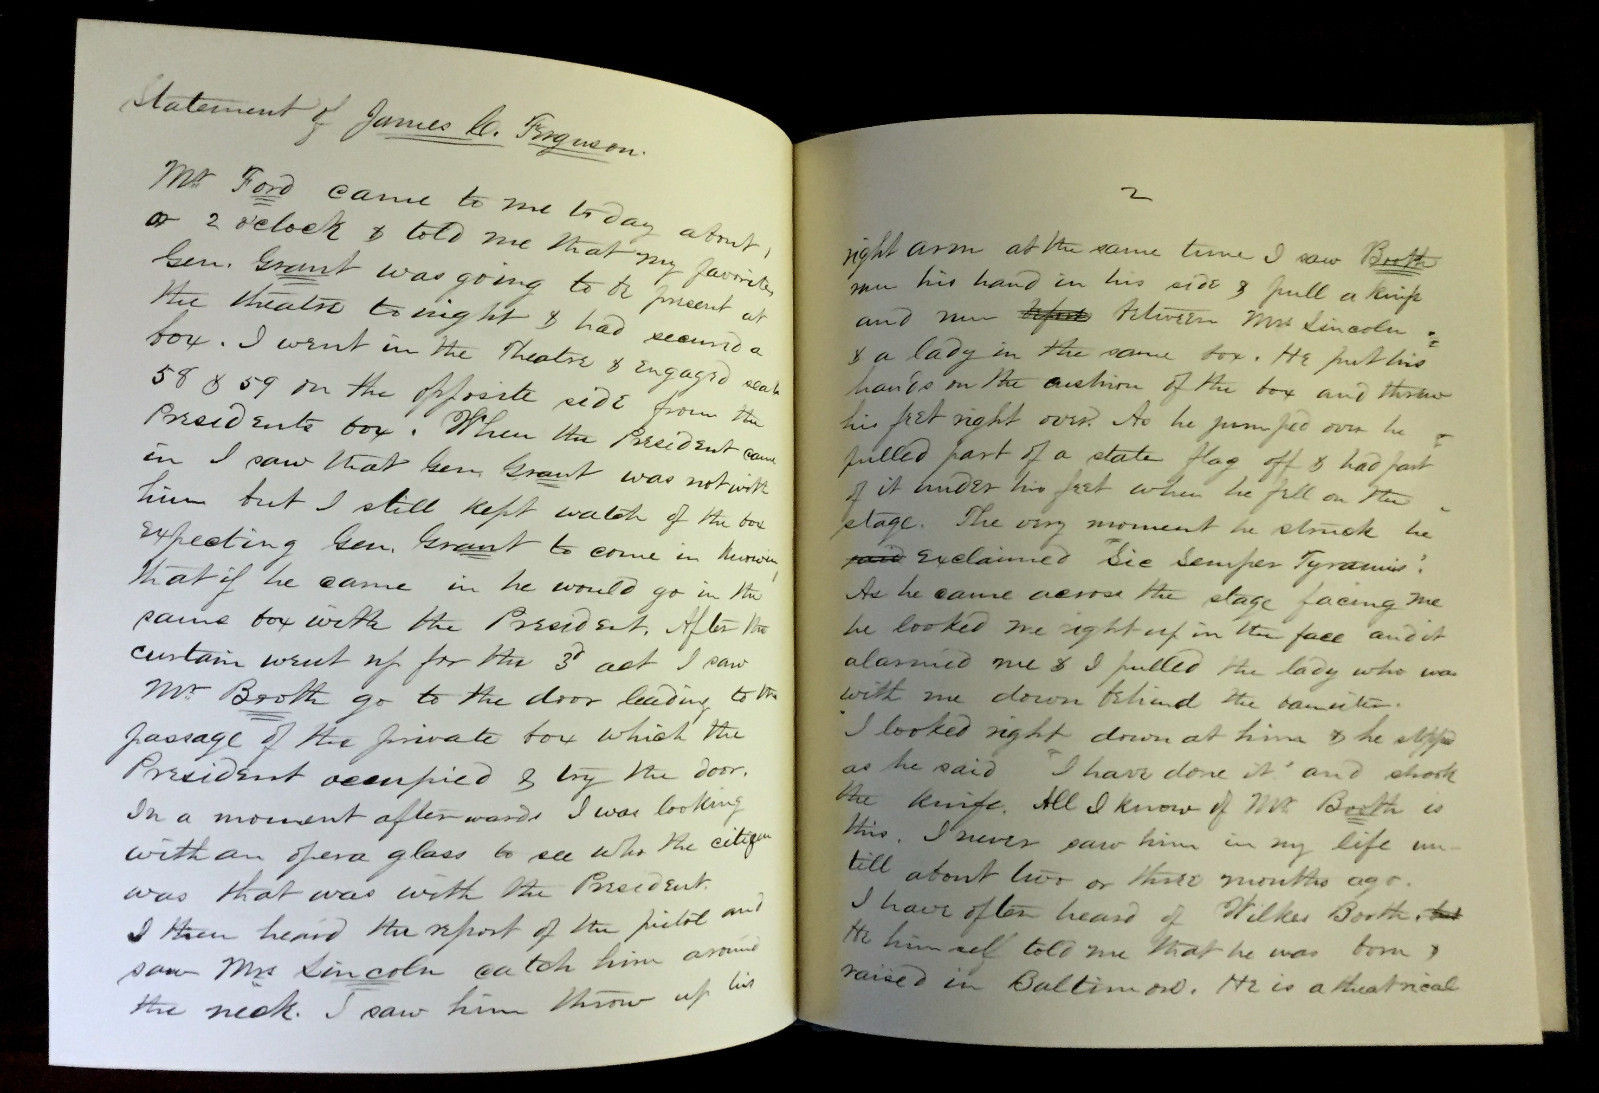 Statement of James C. Ferguson.
Mr Ford came to me to day about 1
or 2 o'clock & told me that my favorite,
Gen. Grant was going to be present at
the theatre to night & had secured a
box. I went in the Theatre & engaged seats
58 & 59 on the opposite side from the
Presidents box. When the President came
in I saw that Gen Grant was not with
him but I still kept watch of the box
expecting Gen. Grant to come in knowing
that if he came in he would go in the
same box with the President. After the
curtain went up for the 3d act I saw
Mr Booth go to the door leading to the
passage of the private box which the
President occupied & try the door.
In a moment afterwards I was looking
with an opera glass to see who the citizen
was that was with the President.
I then heard the report of the pistol and
saw Mrs Lincoln catch him around
the neck. I saw him throw up his
2
right arm at the same time I saw Booth
run his hand in his side & pull a knife
and run before between Mrs Lincoln
& a lady in the same box. He put his
hands on the cushion of the box and threw
his feet right over. As he jumped over he
pulled part of a state flag off & had part
of it under his feet when he fell on the
stage. The very moment he struck he
said exclaimed "Sic Semper Tyrannis".
As he came across the stage facing me
he looked me right up in the face and it
alarmed me & I pulled the lady who was
with me down behind the banister.
I looked right down at him & he stopped
as he said "I have done it" and shook
the knife. All I know of Mr Booth is
this. I never saw him in my life un-
till about two or three months ago.
I have often heard of Wilkes Booth, but
He himself told me that he was born &
raised in Baltimore. He is a theatrical